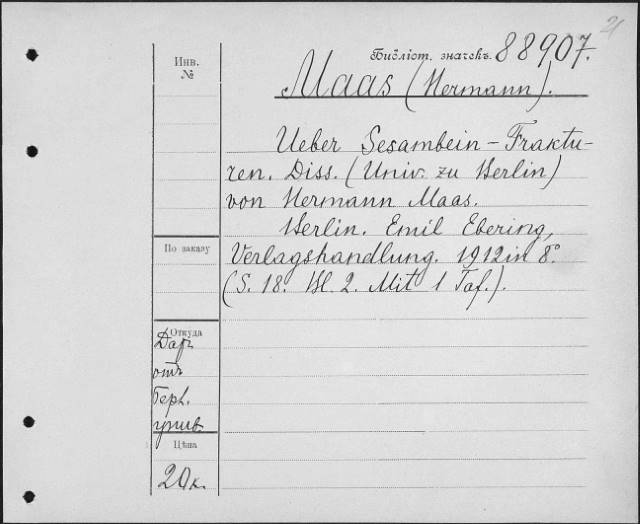 21
Инв.
№
Библіот. значекъ. 88907.
Maas (Hermann).
Ueber Sesambein-Fraktu-
ren. Diss. (Univ. zu Berlin)
von Hermann Maas.
Berlin. Emil Ebering,
По заказу
Verlagshandlung. 1912 in 8°.
(S. 18. Bl. 2. Mit 1 Taf.).
Откуда
Даръ
отъ
Берл.
унив.
Цѣна
20 к.